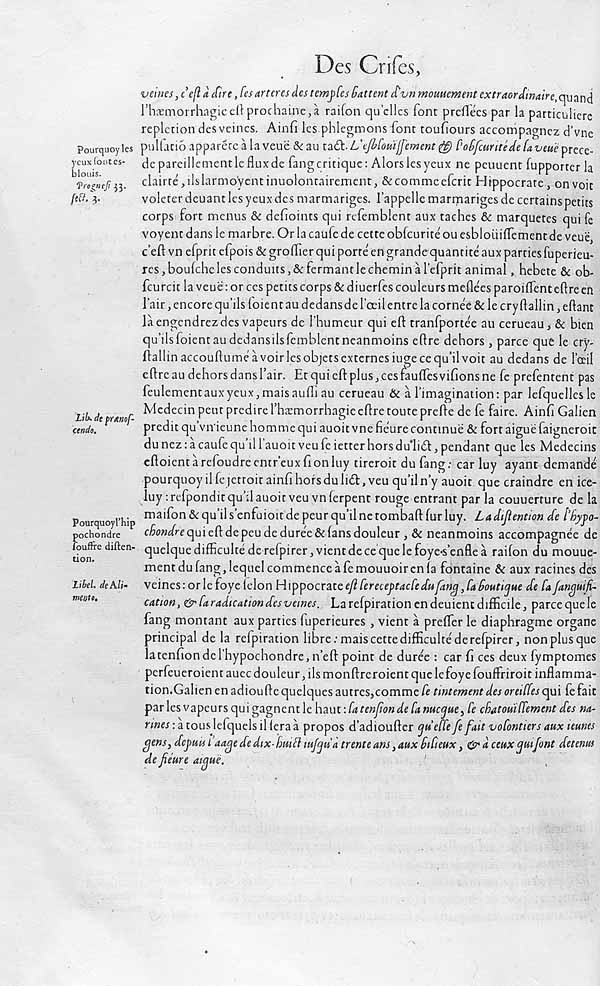 Des Criſes,
veines, c'eſt à dire, les arteres des temples battent d'vn mouuement extraordinaire, quand
l'hæmorrhagie eſt prochaine, à raiſon qu'elles ſont preſſées par la particuliere
repletion des veines. Ainſi les phlegmons ſont touſiours accompagnez d'vne
pulſatiõ apparẽte à la veuë & au tact. L'eſblouiſſement & l'obſcurité de la veuë prece-
de pareillement le flux de ſang critique: Alors les yeux ne peuuent ſupporter la
clairté, ils larmoyent inuolontairement, & comme eſcrit Hippocrate, on voit
voleter deuant les yeux des marmariges. I'appelle marmariges de certains petits
corps fort menus & deſioints qui reſemblent aux taches & marquetes qui ſe
voyent dans le marbre. Or la cauſe de cette obſcurité ou esbloüiſſement de veuë,
c'eſt vn eſprit eſpois & groſſier qui porté en grande quantité aux parties ſuperieu-
res, bouſche les conduits, & fermant le chemin à l'eſprit animal, hebete & ob-
ſcurcit la veuë: or ces petits corps & diuerſes couleurs meſlées paroiſſent eſtre en
l'air, encore qu'ils ſoient au dedans de l'œil entre la cornée & le cryſtallin, eſtant
là engendrez des vapeurs de l'humeur qui eſt tranſportée au cerueau, & bien
qu'ils ſoient au dedans ils ſemblent neanmoins eſtre dehors, parce que le cry-
ſtallin accouſtumé à voir les objets externes iuge ce qu'il voit au dedans de l'œil
eſtre au dehors dans l'air. Et qui eſt plus, ces fauſſes viſions ne ſe preſentent pas
ſeulement aux yeux, mais auſſi au cerueau & à l'imagination: par leſquelles le
Medecin peut predire l'hæmorrhagie eſtre toute preſte de ſe faire. Ainſi Galien
predit qu'vn ieune homme qui auoit vne fiéure continuë & fort aiguë ſaigneroit
du nez: à cauſe qu'il l'auoit veu ſe ietter hors du lict, pendant que les Medecins
eſtoient à reſoudre entr'eux ſi on luy tireroit du ſang: car luy ayant demandé
pourquoy il ſe jettoit ainſi hors du lict, veu qu'il n'y auoit que craindre en ice-
luy: reſpondit qu'il auoit veu vn ſerpent rouge entrant par la couuerture de la
maiſon & qu'il s'enfuioit de peur qu'il ne tombaſt ſur luy. La diſtention de l'hypo-
chondre qui eſt de peu de durée & ſans douleur, & neanmoins accompagnée de
quelque difficulté de reſpirer, vient de ce que le foye s'enfle à raiſon du mouue-
ment du ſang, lequel commence à ſe mouuoir en ſa fontaine & aux racines des
veines: or le foye ſelon Hippocrate eſt le receptacle du ſang, la boutique de la ſanguifi-
cation, & la radication des veines. La reſpiration en deuient difficile, parce que le
ſang montant aux parties ſuperieures, vient à preſſer le diaphragme organe
principal de la reſpiration libre: mais cette difficulté de reſpirer, non plus que
la tenſion de l'hypochondre, n'eſt point de durée: car ſi ces deux ſymptomes
perſeueroient auec douleur, ils monſtreroient que le foye ſouffriroit inflamma-
tion. Galien en adiouſte quelques autres, comme le tintement des oreilles qui ſe fait
par les vapeurs qui gagnent le haut: la tenſion de la nucque, le chatouïllement des na-
rines: à tous leſquels il ſera à propos d'adiouſter qu'elle ſe fait volontiers aux ieunes
gens, depuis l'aage de dix-huict iuſqu'à trente ans, aux bilieux, & à ceux qui ſont detenus
de fiéure aiguë.
Pourquoy les
yeux ſont es-
blouis.
Prognoſt 33.
ſect. 3.
Lib. de prænoſ-
cendo.
Pourquoy l'hip
pochondre
ſouffre diſten-
tion.
Libel. de Ali-
mento.